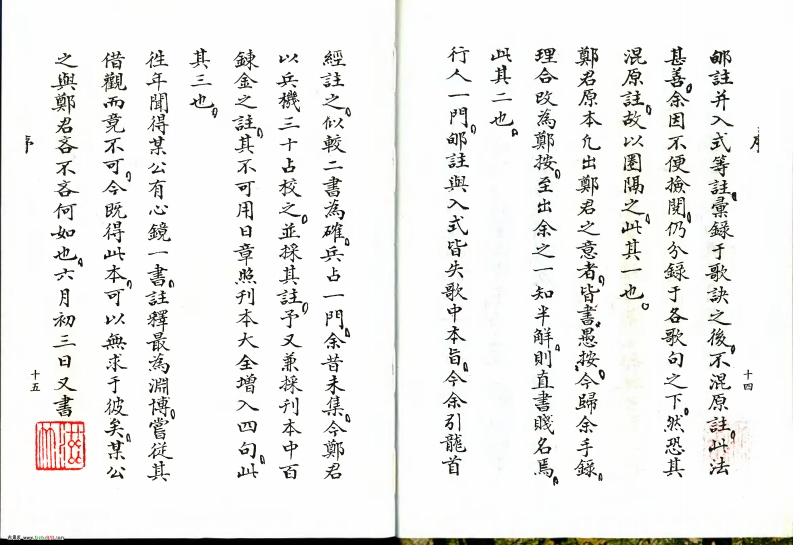 序
邮註并入式等註彙録于歌訣之後不混原註此法
甚善余因不便撿閲仍分録于各歌句之下然恐其
混原註故以圏隔之此其一也
鄭君原本凢出鄭君之意者皆書愚按今歸余手録
理合改為鄭按至出余之一知半解則直書賤名焉
此其二也
行人一門邮註與入式皆失歌中本旨今余引龍首
十四
經註之似較二書為確兵占一門余昔未集今鄭君
以兵機三十占校之並採其註予又兼採刊本中百
錬金之註其不可用日章照刊本大全增入四句此
其三也
徃年聞得某公有心鏡一書註釋最為淵博嘗從其
借觀而竟不可今既得此本可以無求于彼矣某公
之與鄭君吝不吝何如也六月初三日又書
序
十五